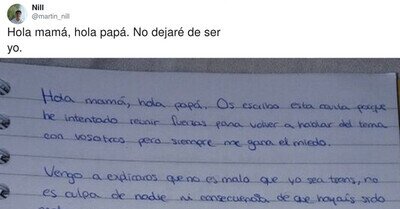 Nill
@martin_nill
Hola mamá, hola papá. No dejaré de ser
yo.
Hola mamá, hola papá. Os escribo esta carta porque
he intentado reunir fuerzas para volver a hablar del tema
con vosotros pero siempre me gana el miedo.
Vengo a explicaros que no es malo que yo sea trans, no
es culpa de nadie ni consecuencia de que hayáis sido